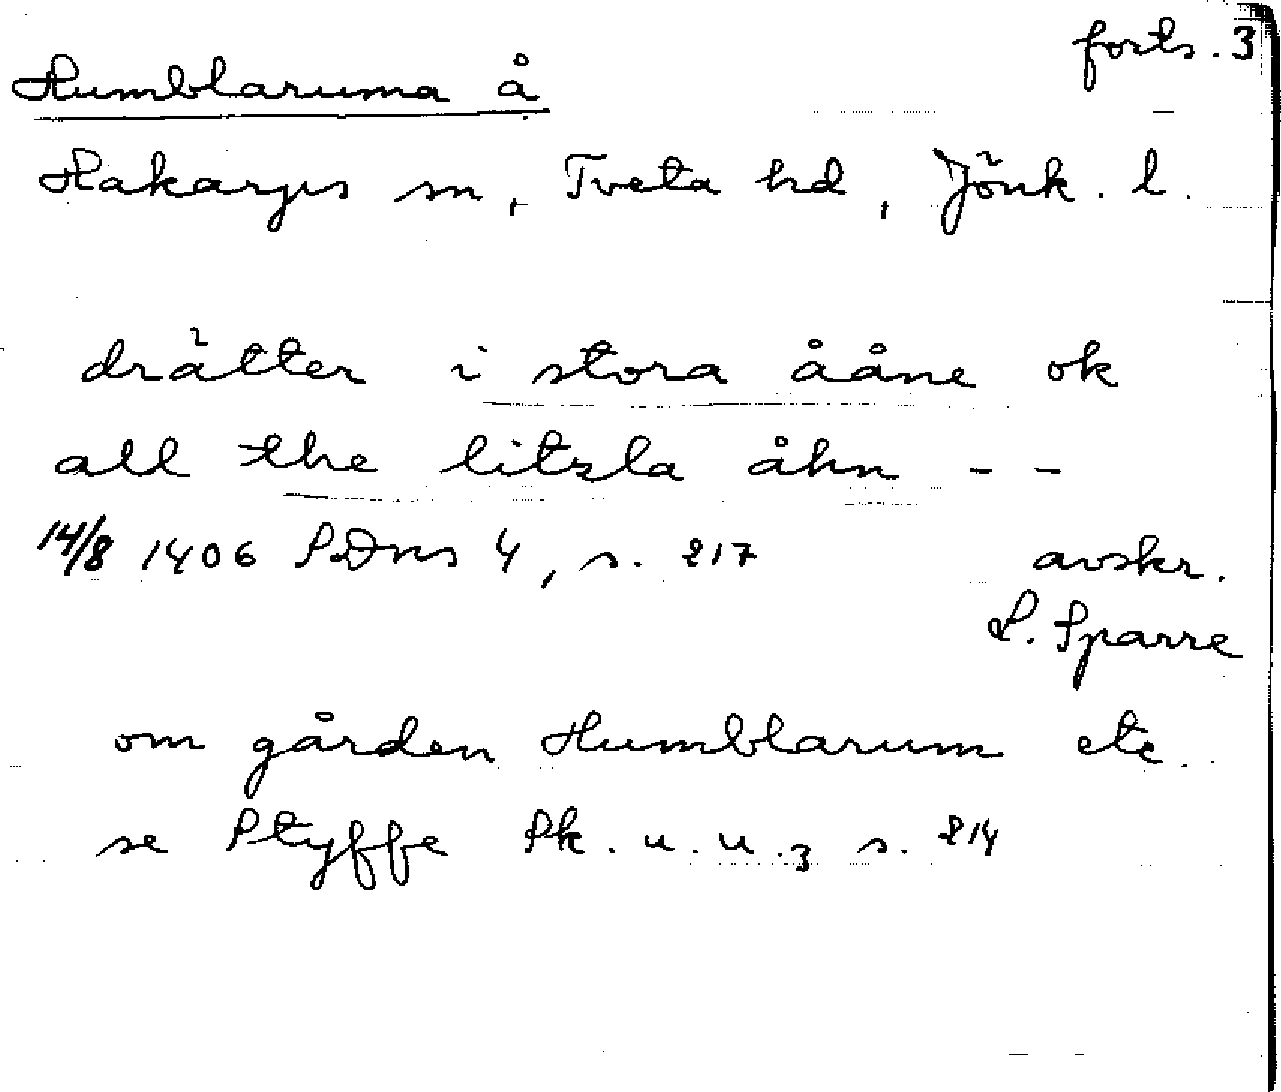 forts. 3
Humblaruma å
Hakarps sn, Tveta hd, Jönk. l.
drätter i stora ååne ok
all the litzla åhn - -
14/8 1406 SDns 4, s. 217 avskr.
L. Sparre
om gården Humblarum etc
se Styffe Sk. u. u. 3 s. 214